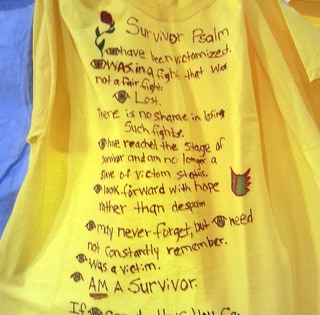 Survivor Psalm
have been victimized.
was in a fight that was
not a fair fight.
Lost.
There is no shame in losing
such fights.
have reached the stage of
survivor and am no longer a
slave of victim status.
look forward with hope
rather than despair
may never forget, but need
not constantly remember.
was a victim.
AM A Survivor.
If